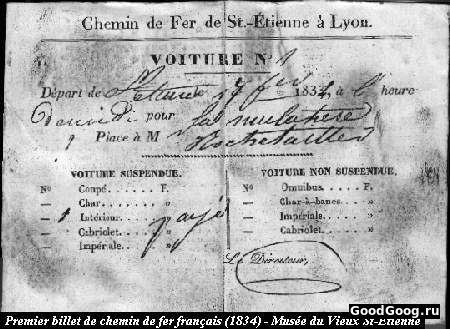 Chemin de Fer de St.-Étienne à Lyon.
VOITURE N.º 1
Départ de St Etienne le 27 fév 1834, à l' heure
pour la mulatière
1 Place à M Rochetaillée
VOITURE SUSPENDUE.
Nº Coupé...... F.
— Char........ »
— 1 Intérieur..... » payé
— Cabriolet..... »
Impériale.... »
VOITURE NON SUSPENDUE.
Nº Omnibus..... F.
— Char-à-bancs... »
— Impériale..... »
— Cabriolet..... »
Le Directeur,
Premier billet de chemin de fer français (1834) - Musée du Vieux St-Etienne
GoodGoog.ru